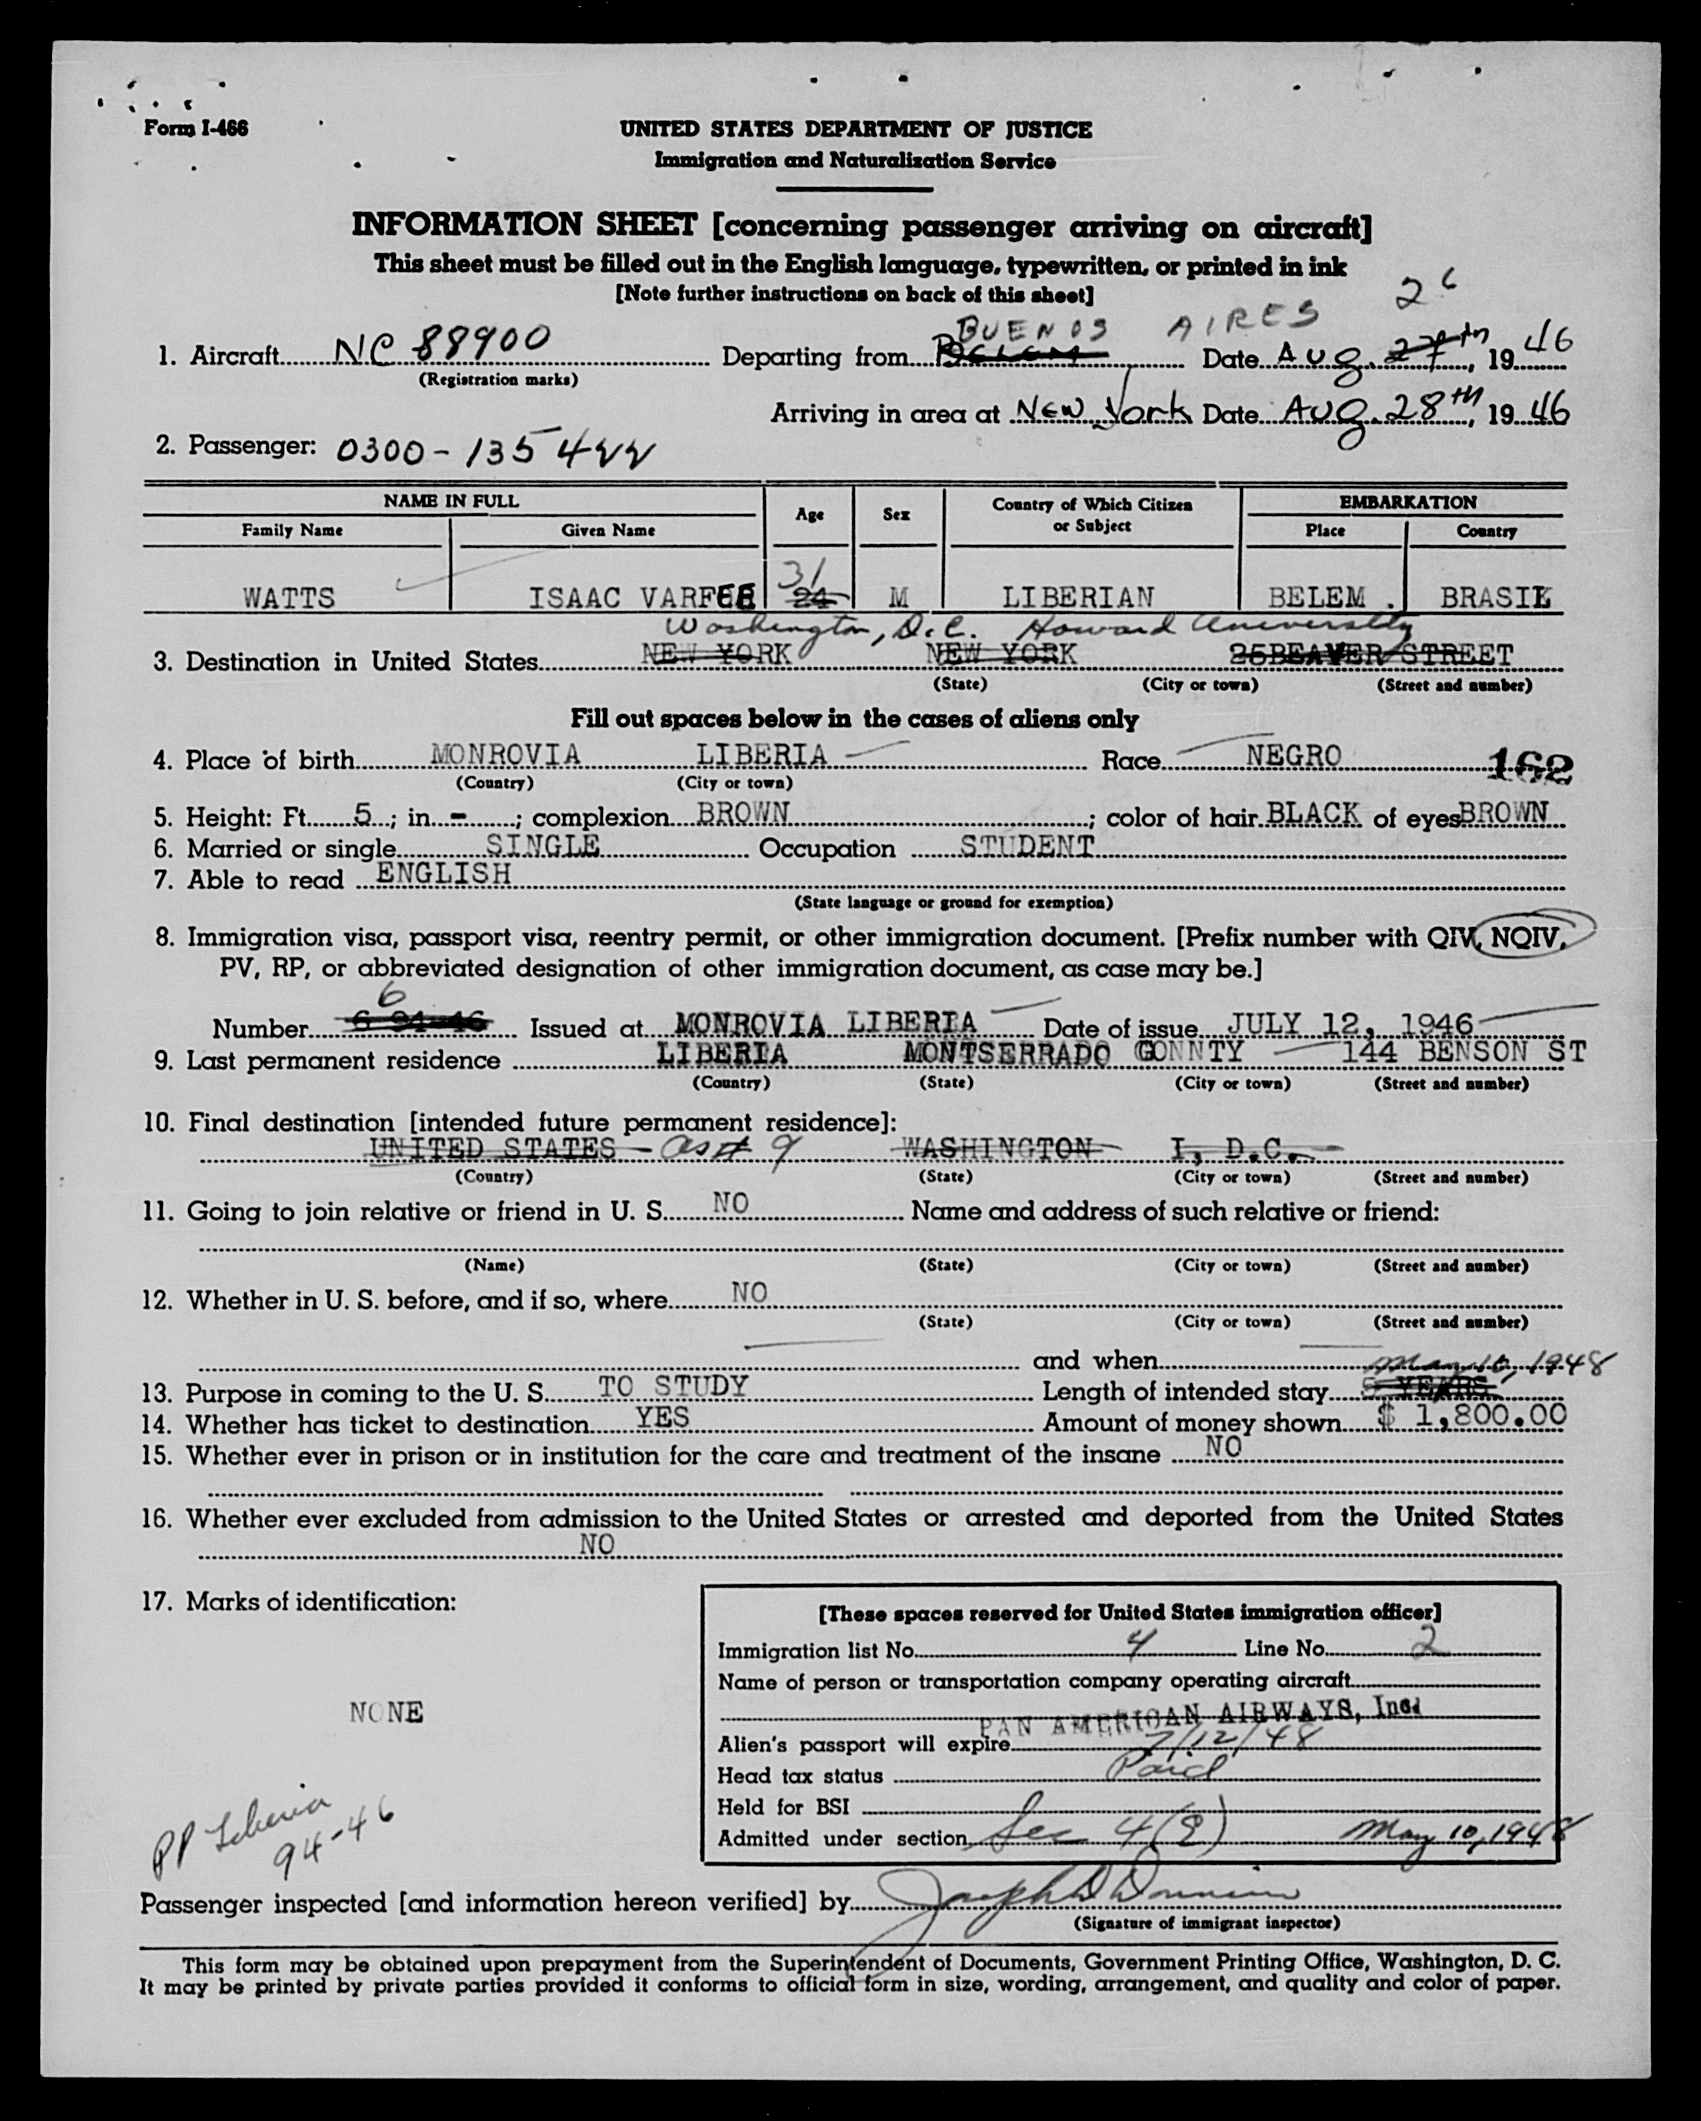 Form I-466
UNITED STATES DEPARTMENT OF JUSTICE
Immigration and Naturalization Service
INFORMATION SHEET [concerning passenger arriving on aircraft]
This sheet must be filled out in the English language, typewritten, or printed in ink
[Note further instructions on back of this sheet]
26
BUENOS AIRES
1. Aircraft NC 88900 Departing from Belem Date Aug. 27th, 1946
(Registration marks)
Arriving in area at New York Date Aug. 28th, 1946
2. Passenger: 0300-135422
NAME IN FULL Age Sex Country of Which Citizen or Subject EMBARKATION
Family Name Given Name Place Country
31
WATTS ISAAC VARFEE 24 M LIBERIAN BELEM. BRASIL
Washington, D.C. Howard University
3. Destination in United States NEW YORK NEW YORK 25BEAVER STREET
(State) (City or town) (Street and number)
Fill out spaces below in the cases of aliens only
4. Place of birth MONROVIA LIBERIA Race NEGRO 162
(Country) (City or town)
5. Height: Ft. 5; in. -; complexion BROWN; color of hair BLACK of eyes BROWN
6. Married or single SINGLE Occupation STUDENT
7. Able to read ENGLISH
(State language or ground for exemption)
8. Immigration visa, passport visa, reentry permit, or other immigration document. [Prefix number with QIV, NQIV,
PV, RP, or abbreviated designation of other immigration document, as case may be.]
6
Number 6 94-46 Issued at MONROVIA LIBERIA Date of issue JULY 12, 1946
9. Last permanent residence LIBERIA MONTSERRADO CONNTY 144 BENSON ST
(Country) (State) (City or town) (Street and number)
10. Final destination [intended future permanent residence]:
UNITED STATES - as # 9 WASHINGTON I, D.C.
(Country) (State) (City or town) (Street and number)
11. Going to join relative or friend in U. S. NO Name and address of such relative or friend:
(Name) (State) (City or town) (Street and number)
12. Whether in U. S. before, and if so, where NO
(State) (City or town) (Street and number)
and when
May 10, 1948
13. Purpose in coming to the U. S. TO STUDY Length of intended stay YEARS
14. Whether has ticket to destination YES Amount of money shown $ 1,800.00
15. Whether ever in prison or in institution for the care and treatment of the insane NO
16. Whether ever excluded from admission to the United States or arrested and deported from the United States
NO
17. Marks of identification:
NONE
PP Liberia
94-46
[These spaces reserved for United States immigration officer]
Immigration list No. 4 Line No. 2
Name of person or transportation company operating aircraft
PAN AMERICAN AIRWAYS, Inc.
Alien's passport will expire 7/12/48
Head tax status Paid
Held for BSI
Admitted under section Sec 4(e) May 10, 1948
Passenger inspected [and information hereon verified] by Joseph D
(Signature of immigrant inspector)
This form may be obtained upon prepayment from the Superintendent of Documents, Government Printing Office, Washington, D. C.
It may be printed by private parties provided it conforms to official form in size, wording, arrangement, and quality and color of paper.